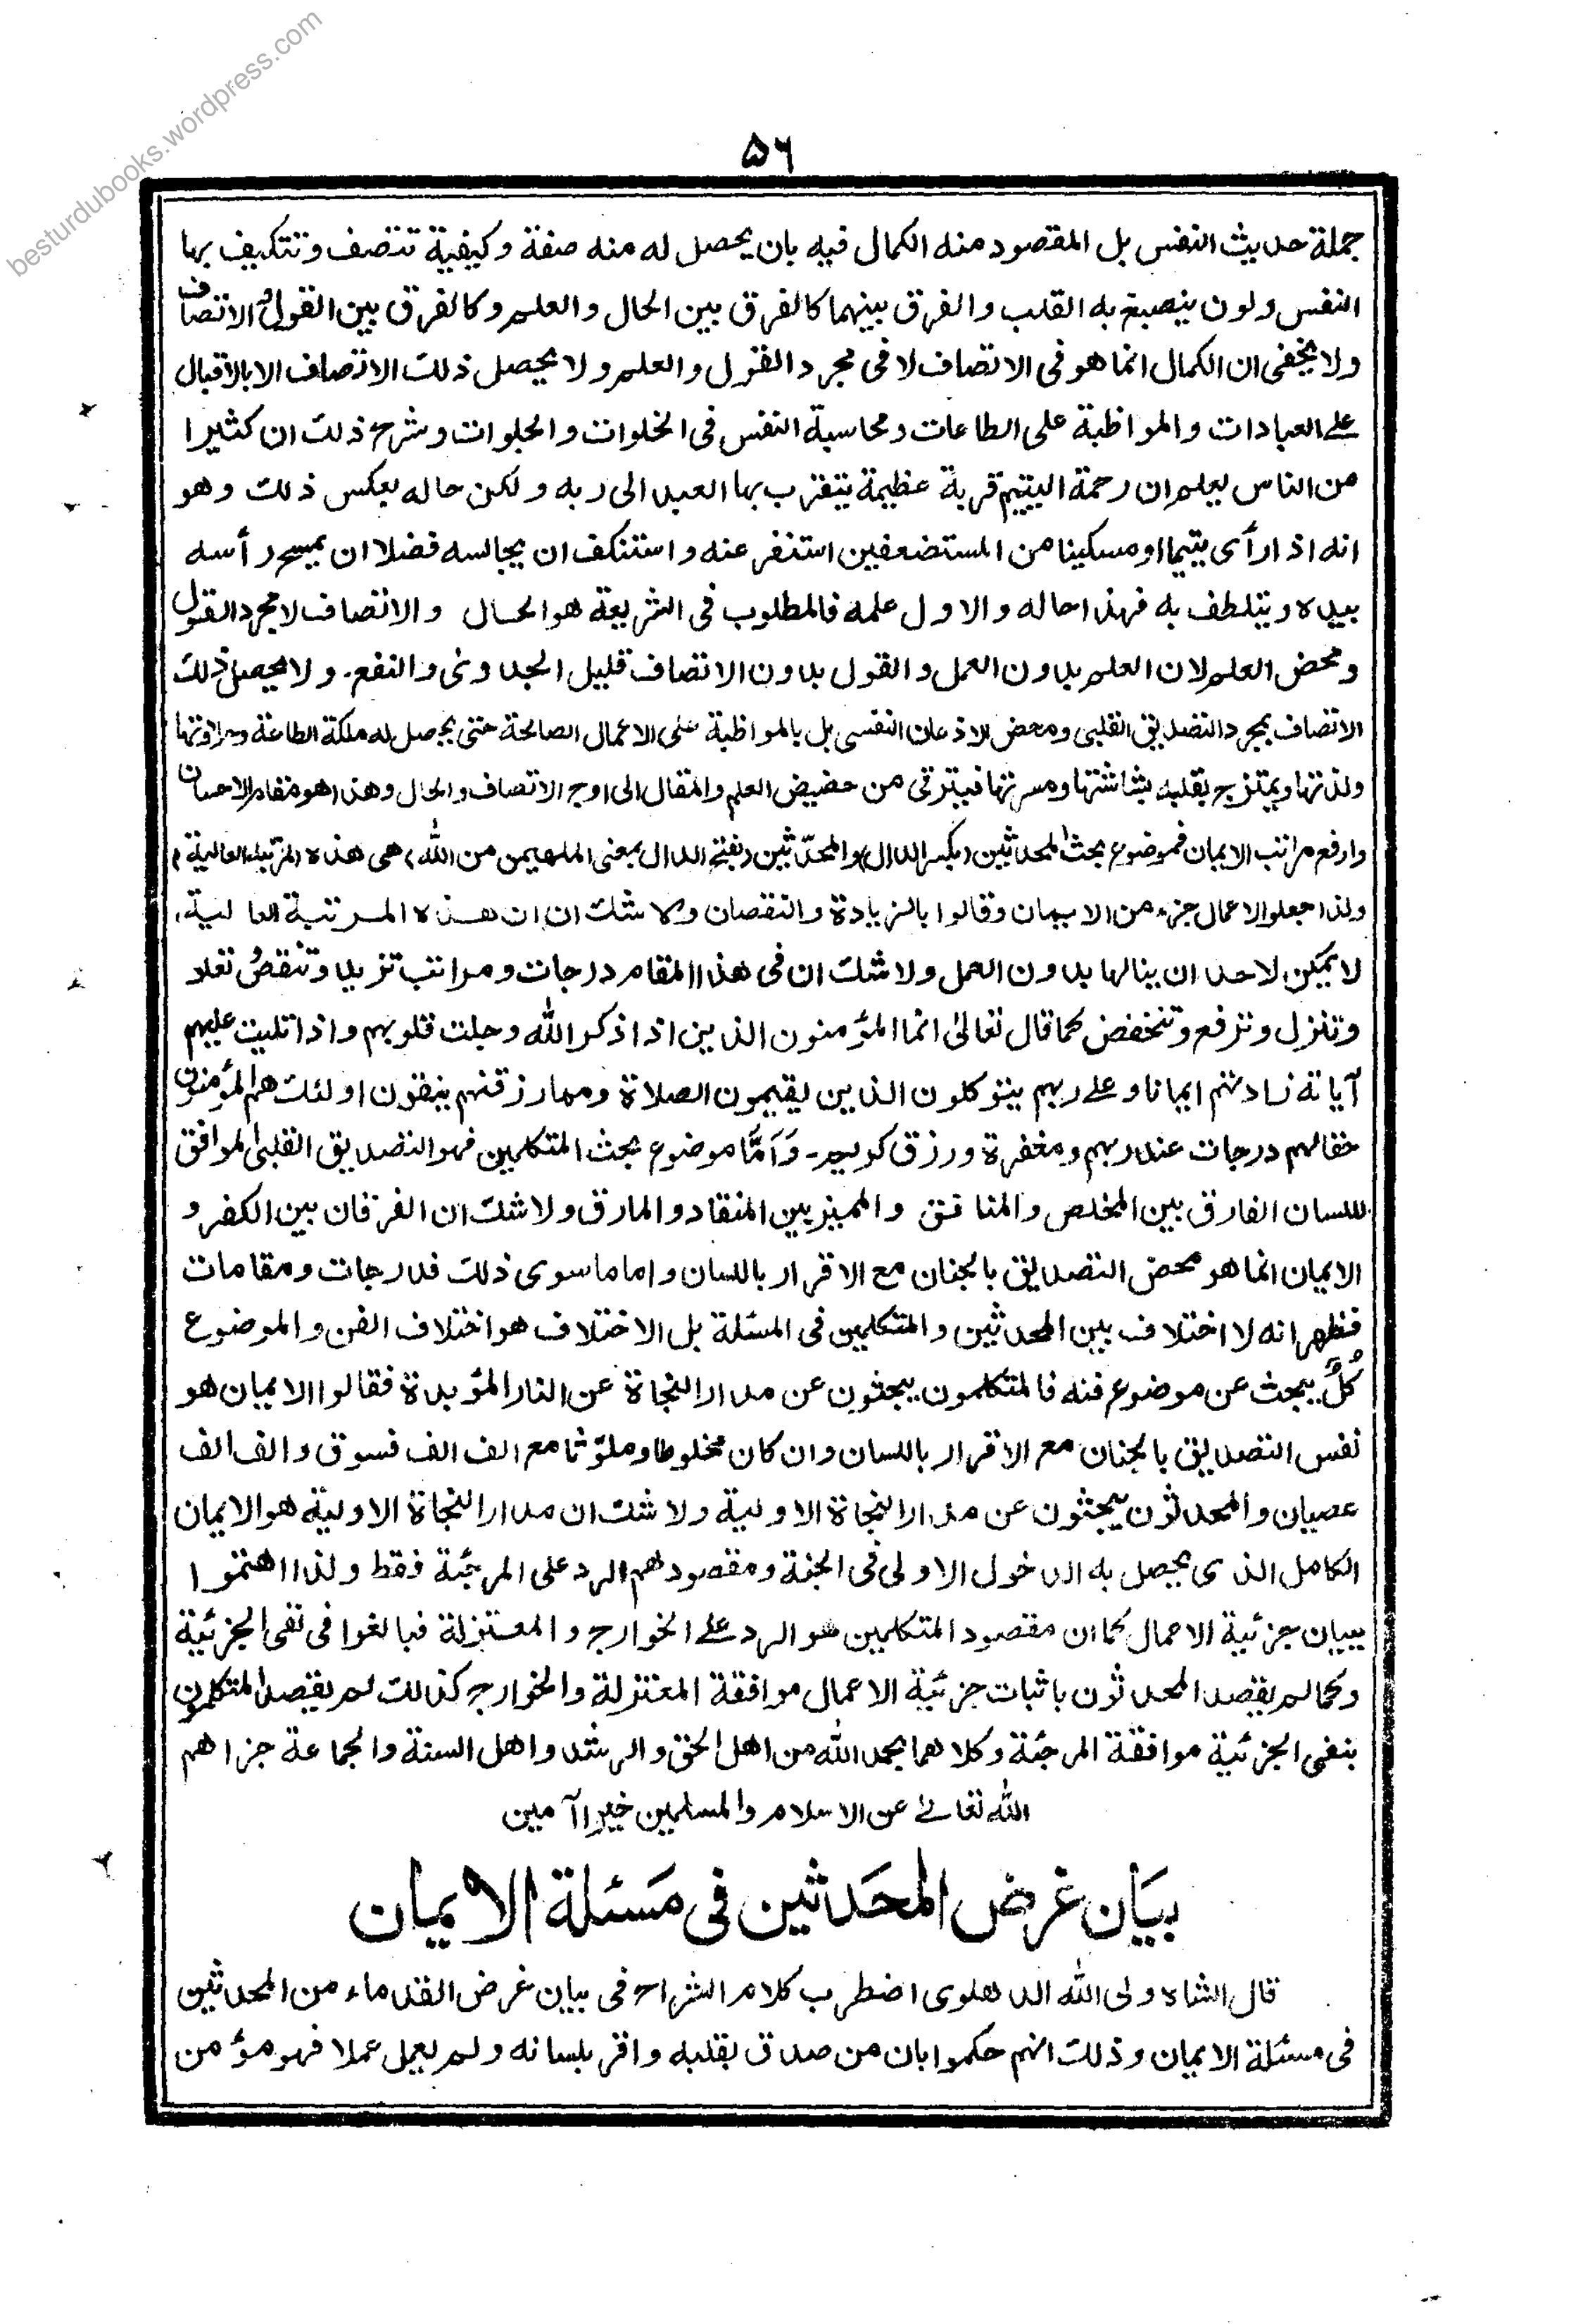 besturdubooks.wordpress.com
۵۶
جملة حديث النفس بل المقصود منه الكمال فيه بان يحصل له منه صفة وكيفية تتصف وتتكيف بها
النفس ولون ينصبغ به القلب والفرق بينهما كالفرق بين الحال والعلم وكالفرق بين القول والاتصاف
ولا يخفى ان الكمال انما هو في الاتصاف لا في مجرد القول والعلم ولا يحصل ذلك الاتصاف الا بالاقبال
على العبادات والمواظبة على الطاعات ومحاسبة النفس في الخلوات والجلوات وشرح ذلك ان كثيرا
من الناس يعلم ان رحمة اليتيم قربة عظيمة يتقرب بها العبد الى ربه ولكن حاله بعكس ذلك وهو
انه اذا رأى يتيما او مسكينا من المستضعفين استنفر عنه واستنكف ان يجالسه فضلا ان يمسح رأسه
بيده ويتلطف به فهذا حاله والاول علمه فالمطلوب في الشريعة هو الحال والاتصاف لا مجرد القول
ومحض العلم لان العلم بدون العمل والقول بدون الاتصاف قليل الجدوى والنفع۔ ولا يحصل ذلك
الاتصاف بمجرد التصديق القلبى ومحض الاذعان النفسى بل بالمواظبة على الاعمال الصالحة حتى يحصل له ملكة الطاعة وحلاوتها
ولذتها ويمتزج بقلبه بشاشتها ومسرتها فيترقى من حضيض العلم والمقال الى اوج الاتصاف والحال وهذا هو مقام الاحسان
وارفع مراتب الايمان فموضوع بحث المحدثين (بكسر الدال) والمحدَّثين (بفتح الدال بمعنى الملهمين من الله) هى هذه المرتبة العالية،
ولذا جعلوا الاعمال جزء من الايمان وقالوا بالزيادة والنقصان ولا شك ان هذه المرتبة العالية،
لا يمكن لاحد ان ينالها بدون العمل ولا شك ان في هذا المقام درجات ومراتب تزيد وتنقص تعلو
وتنزل وترفع وتنخفض كما قال تعالىٰ انما المؤمنون الذين اذا ذكر الله وجلت قلوبهم واذا تليت عليهم
آياته زادتهم ايمانا وعلے ربهم يتوكلون الذين يقيمون الصلاة ومما رزقنهم ينفقون اولئك هم المؤمنون
حقا لهم درجات عند ربهم ومغفرة ورزق كريم۔ وَاَمَّا موضوع بحث المتكلمين فهو التصديق القلبى الموافق
للسان الفارق بين المخلص والمنافق والمميز بين المنقاد والمارق ولا شك ان الفرقان بين الكفر و
الايمان انما هو محض التصديق بالجنان مع الاقرار باللسان واما ما سوى ذلك فدرجات ومقامات
فظهر انه لا اختلاف بين المحدثين والمتكلمين في المسئلة بل الاختلاف هو اختلاف الفن والموضوع
كُلٌّ يبحث عن موضوع فنه فالمتكلمون يبحثون عن مدار النجاة عن النار المؤبدة فقالوا الايمان هو
نفس التصديق بالجنان مع الاقرار باللسان وان كان مخلوطا وملوّثا مع الف الف فسوق والف الف
عصيان والمحدثون يبحثون عن مدار النجاة الاولية ولا شك ان مدار النجاة الاولية هو الايمان
الكامل الذى يحصل به الدخول الاولى في الجنة ومقصودهم الرد على المرجئة فقط ولذا اهتموا
ببيان جزئية الاعمال كما ان مقصود المتكلمين هو الرد علے الخوارج والمعتزلة فبالغوا في نفى الجزئية
وكما لم يقصد المحدثون باثبات جزئية الاعمال موافقة المعتزلة والخوارج كذلك لم يقصد المتكلمون
بنفى الجزئية موافقة المرجئة وكلاهما بحمد الله من اهل الحق والرشد واهل السنة والجماعة جزاهم
الله تعالىٰ عن الاسلام والمسلمين خيرا آمين
بيَان غرض المحَدثين فى مَسئلة الايمان
قال الشاه ولى الله الدهلوى اضطرب كلام الشراح في بيان غرض القدماء من المحدثين
في مسئلة الايمان وذلك انهم حكموا بان من صدق بقلبه واقر بلسانه ولم يعمل عملا فهو مؤمن